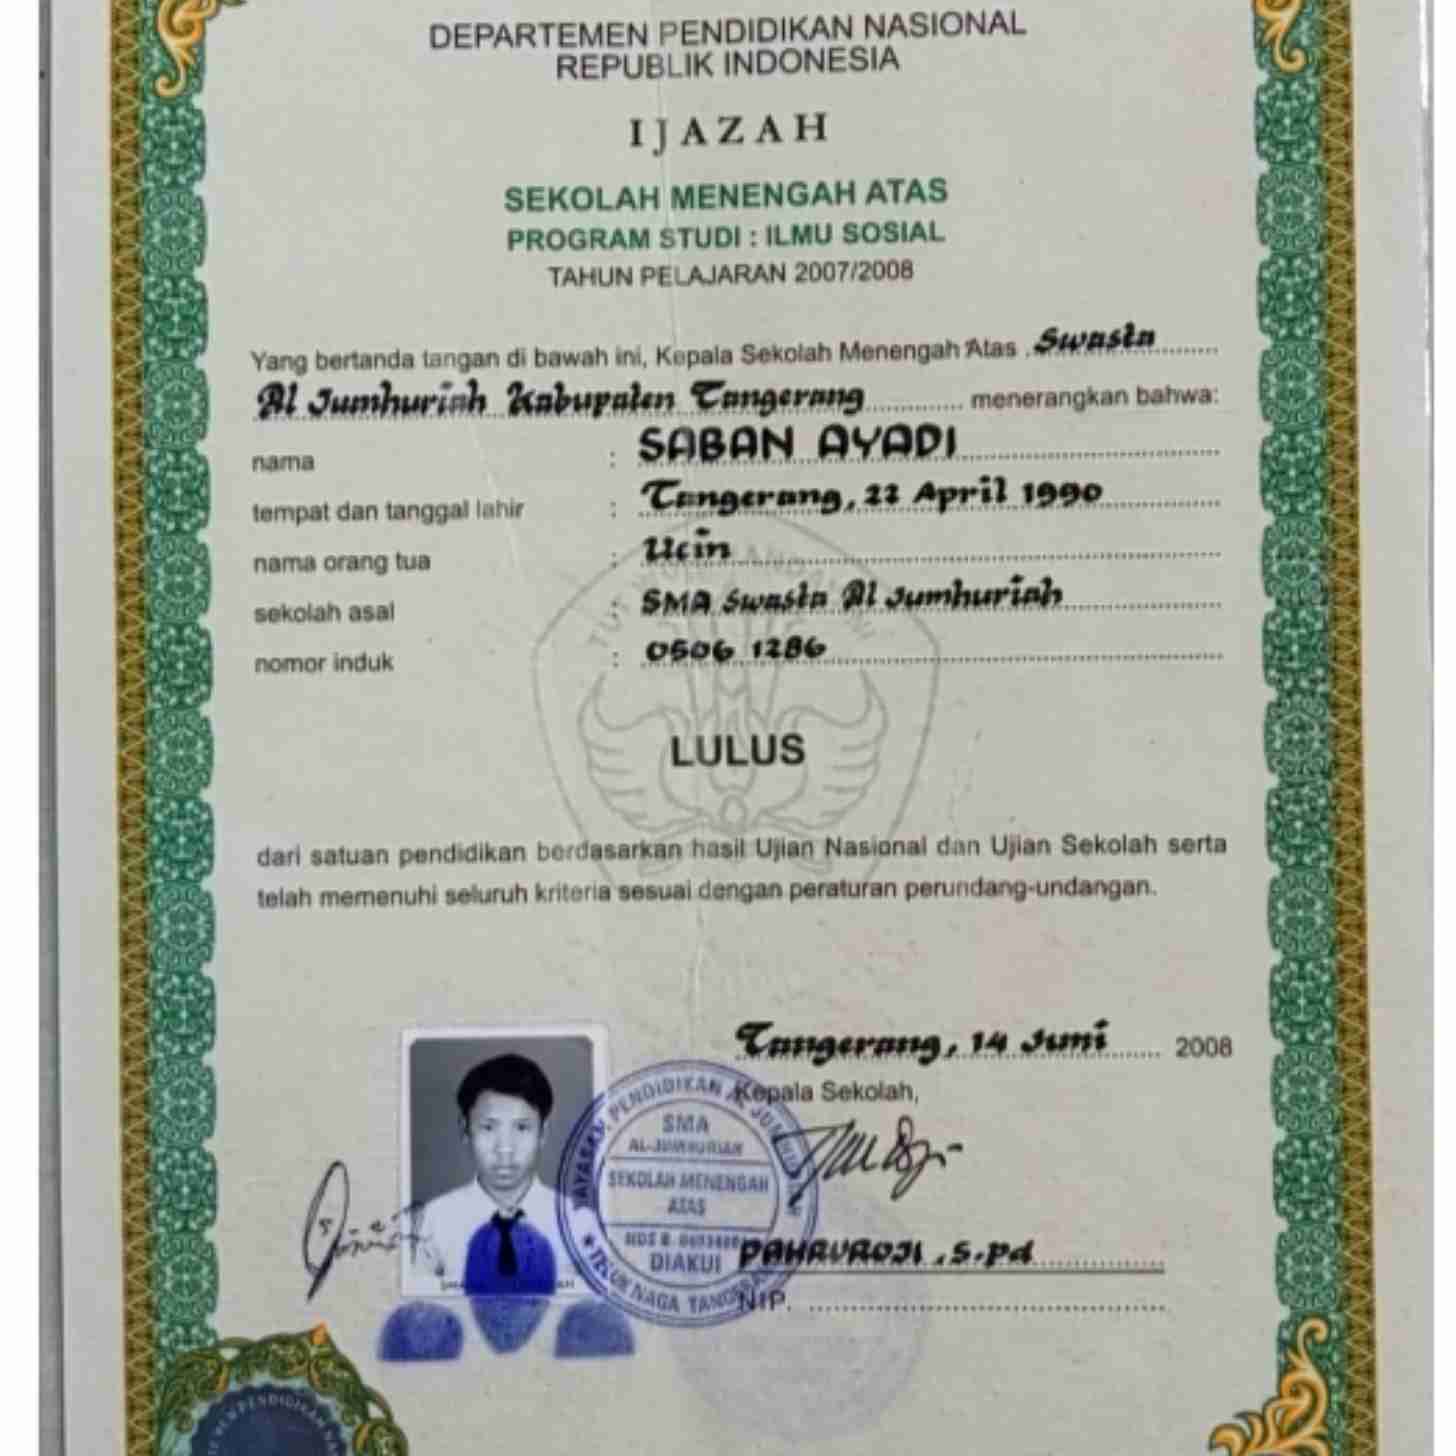 DEPARTEMEN PENDIDIKAN NASIONAL
REPUBLIK INDONESIA
IJAZAH
SEKOLAH MENENGAH ATAS
PROGRAM STUDI : ILMU SOSIAL
TAHUN PELAJARAN 2007/2008
Yang bertanda tangan di bawah ini, Kepala Sekolah Menengah Atas Swasta
Al Jumhuriah Kabupaten Tangerang menerangkan bahwa:
nama : SABAN AYADI
tempat dan tanggal lahir : Tangerang, 22 April 1990
nama orang tua : Ucin
sekolah asal : SMA Swasta Al Jumhuriah
nomor induk : 0506 1286
LULUS
dari satuan pendidikan berdasarkan hasil Ujian Nasional dan Ujian Sekolah serta
telah memenuhi seluruh kriteria sesuai dengan peraturan perundang-undangan.
Tangerang, 14 Juni 2008
Kepala Sekolah,
YAYASAN PENDIDIKAN AL JUMHURIAH
SMA
AL-JUMHURIAH
SEKOLAH MENENGAH
ATAS
DIAKUI
TELUK NAGA TANGERANG
PAHRUROJI, S.Pd
NIP.